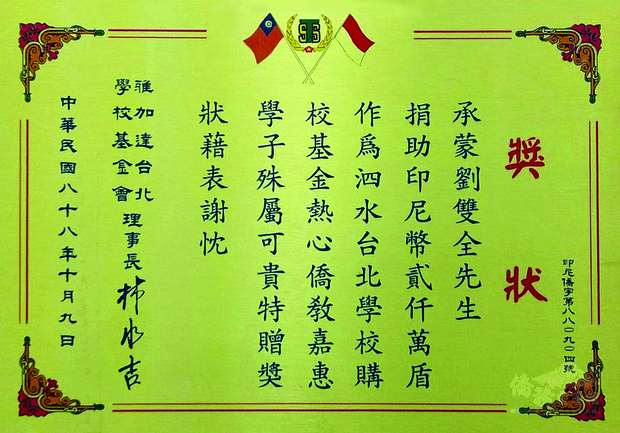 獎狀
印尼僑字第八八〇九〇四號
承蒙劉雙全先生
捐助印尼幣貳仟萬盾
作爲泗水台北學校購
校基金熱心僑教嘉惠
學子殊屬可貴特贈獎
狀藉表謝忱
雅加達台北
學校基金會
理事長
中華民國八十八年十月九日